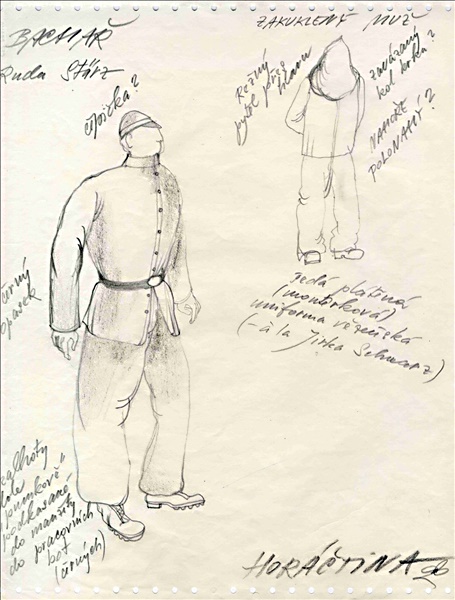 BACHAŘ
Ruda Stárz
čepička?
černý
opasek
kalhoty
dole
"pumkově"
podkasané
do manžety
do pracovních
bot
(černých)
ZAKUKLENÝ MUŽ
Režný
pytel přes
hlavu
zavázaný
kol krku?
NAHOŘE
POLONAHÝ?
Šedá plátěná
(montérková)
uniforma vězeňská
(-à la Jirka Schwarz)
HORÁČTINA 96